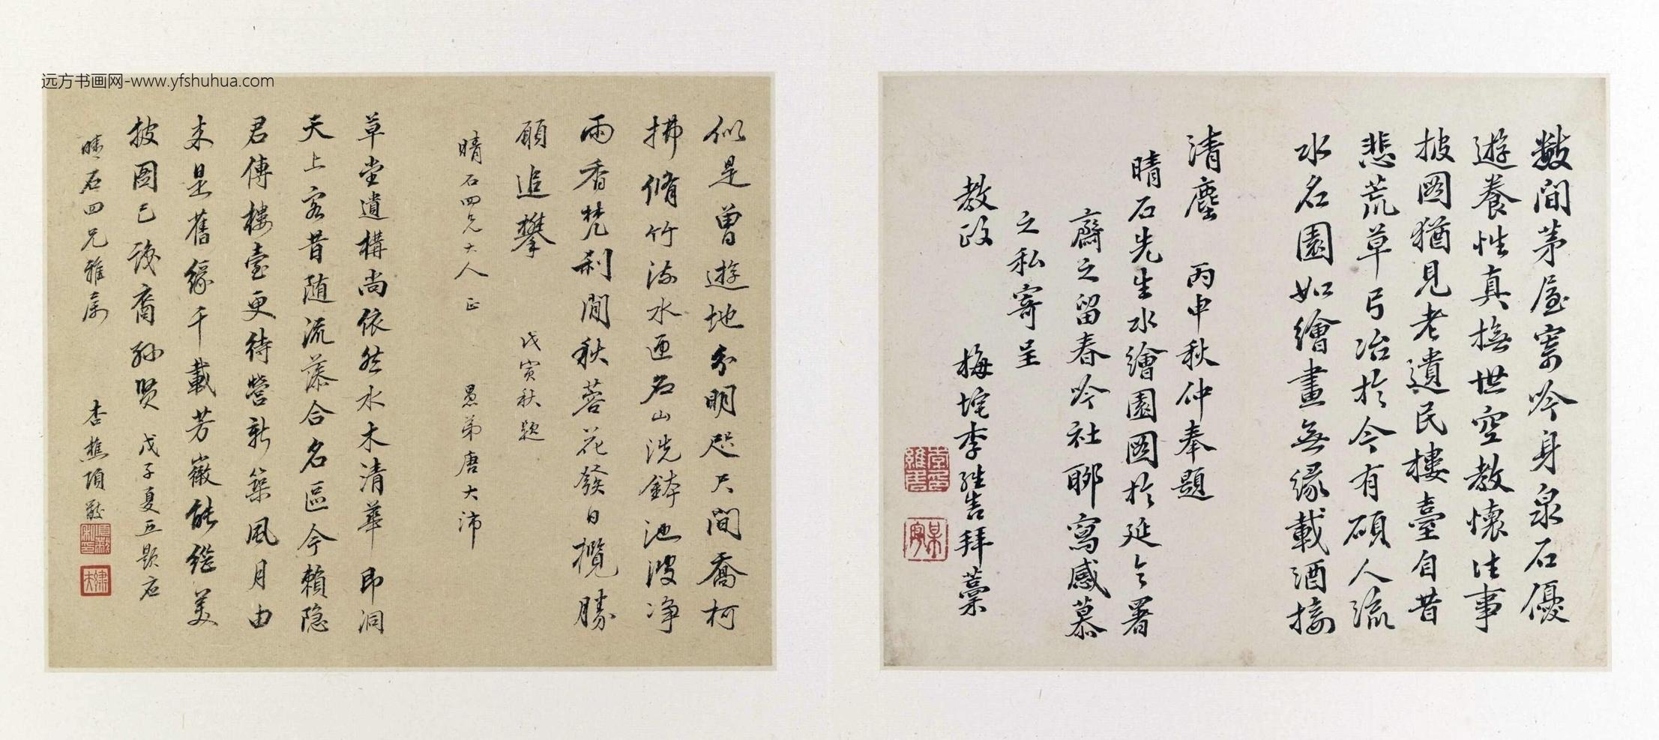 數間茅屋寄吟身泉石優
遊養性真撫世空教懷往事
披圖猶見老遺民樓臺自昔
悲荒草弓冶於今有碩人流
水名園如繪畫無緣載酒接
清塵 丙申秋仲奉題
晴石先生水繪園圖於延令署
齋之留春吟社聊寫感慕
之私寄呈
教政 梅垞李維告拜藁
似是曾遊地分明咫尺間喬柯
拂脩竹流水匝名山洗鉢池波净
雨香梵刹閒秋菩花發日攬勝
願追攀 戊寅秋題
晴石四兄大人正 愚弟唐大沛
草堂遺構尚依然水木清華即洞
天上客昔隨流蕩合名區今賴隐
君傳樓臺更待營新築風月由
来是舊緣千載芳徽能继美
披圖已識裔孫賢 戊子夏五题应
晴石四兄雅屬 杏樵項
远方书画网-www.yfshuhua.com